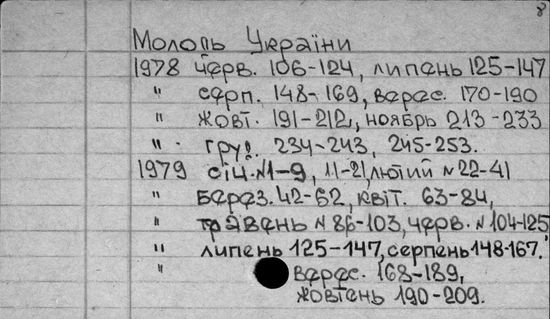 8
Молодь України
1978 черв. 106-124, липень 125-147
" серп. 148-169, верес. 170-190
" жовт. 191-212, ноябрь 213-233
" груд. 234-243, 245-253.
1979 січ. №1-9, 11-21, лютий №22-41
" берез. 42-62, квіт. 63-84,
" травень № 86-103, черв. № 104-125,
" липень 125-147, серпень 148-167.
" верес. 168-189,
жовтень 190-209.